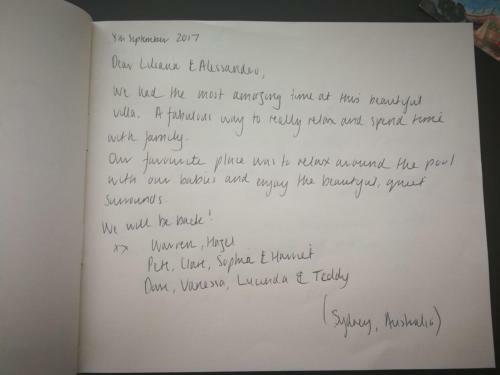 September 2017
Dear Liliana & Alessandro,
We had the most amazing time at this beautiful
villa. A fabulous way to really relax and spend time
with family.
Our favourite place was to relax around the pool
with our babies and enjoy the beautiful, quiet
surrounds.
We will be back!
xx Warren, Hazel
Pete, Clare, Sophia & Harriet
Dave, Vanessa, Lucinda & Teddy
(Sydney, Australia)